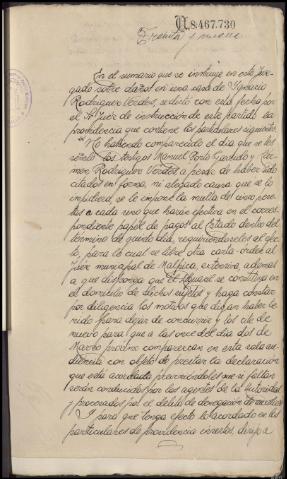 N.8.467.730
Treinta y nueve
En el sumario que se instruye en este Juz-
gado sobre daños en una casa de Ignacio
Rodriguez Verdes, se dictó con esta fecha por
el Sr. Juez de instrucción de este partido la
providencia que contiene los particulares siguientes
"No habiendo comparecido el dia que se les
señaló los testigos Manuel Porto Garrido y Ra-
mon Rodriguez Verdes a pesar de haber sido
citados en forma, ni alegado causa que se lo
impidiera, se les impone la multa de cinco pese-
tas a cada uno que harán efectiva en el corres-
pondiente papel de pagos al Estado dentro del
término de quinto dia, requiriéndoseles al efec-
to, para lo cual se libre otra carta-orden al
Juez municipal de Malpica, extensiva, además
a que disponga que el Alguacil se constituya en
el domicilio de dichos sujetos y haga constar
por diligencia los motivos que digan haber te-
nido para dejar de concurrir y los cite de
nuevo para que a las once del dia dos de
Marzo próximo comparezcan en esta sala au-
diencia con objeto de prestar la declaración
que está acordada previniéndoles que si faltan
serán conducidos por los agentes de la autoridad
y procesados por el delito de denegación de auxilio"
Y para que tenga efecto lo acordado en los
particulares de providencia insertos, dirijo a